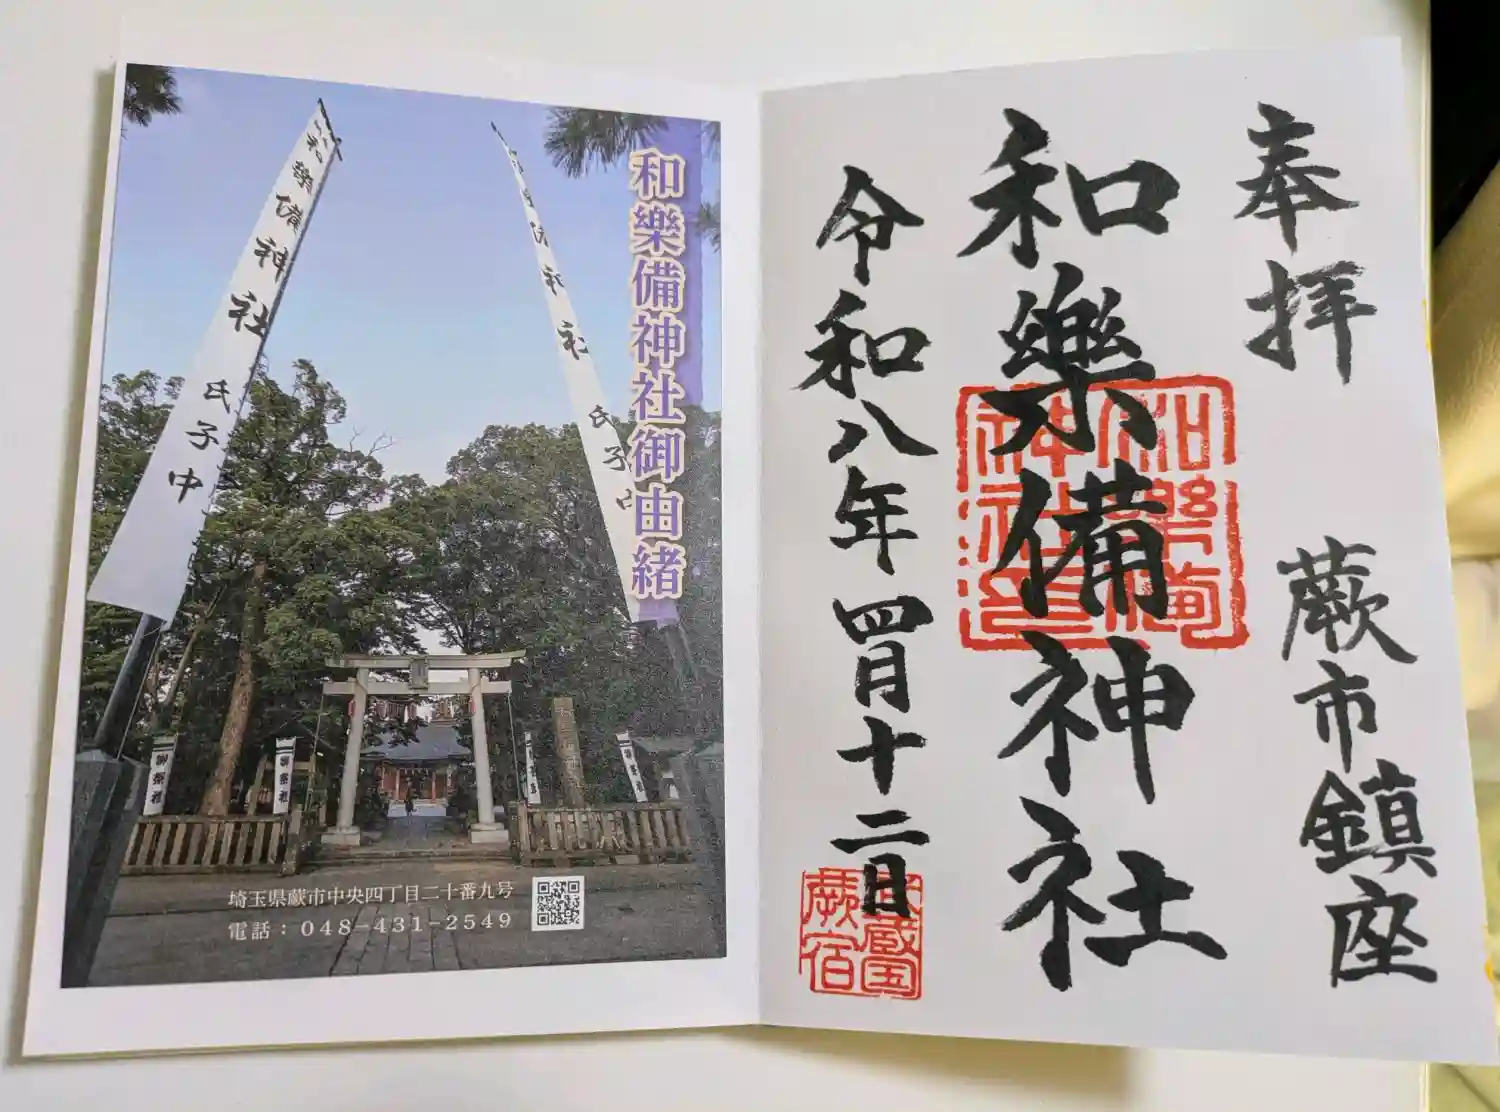 和樂備神社御由緒
和樂備神社
氏子中
社
氏子中
埼玉県蕨市中央四丁目二十番九号
電話：048-431-2549
奉拝
蕨市鎮座
和樂備神社
和樂備
神社印
令和八年四月十二日
武蔵国
蕨宿